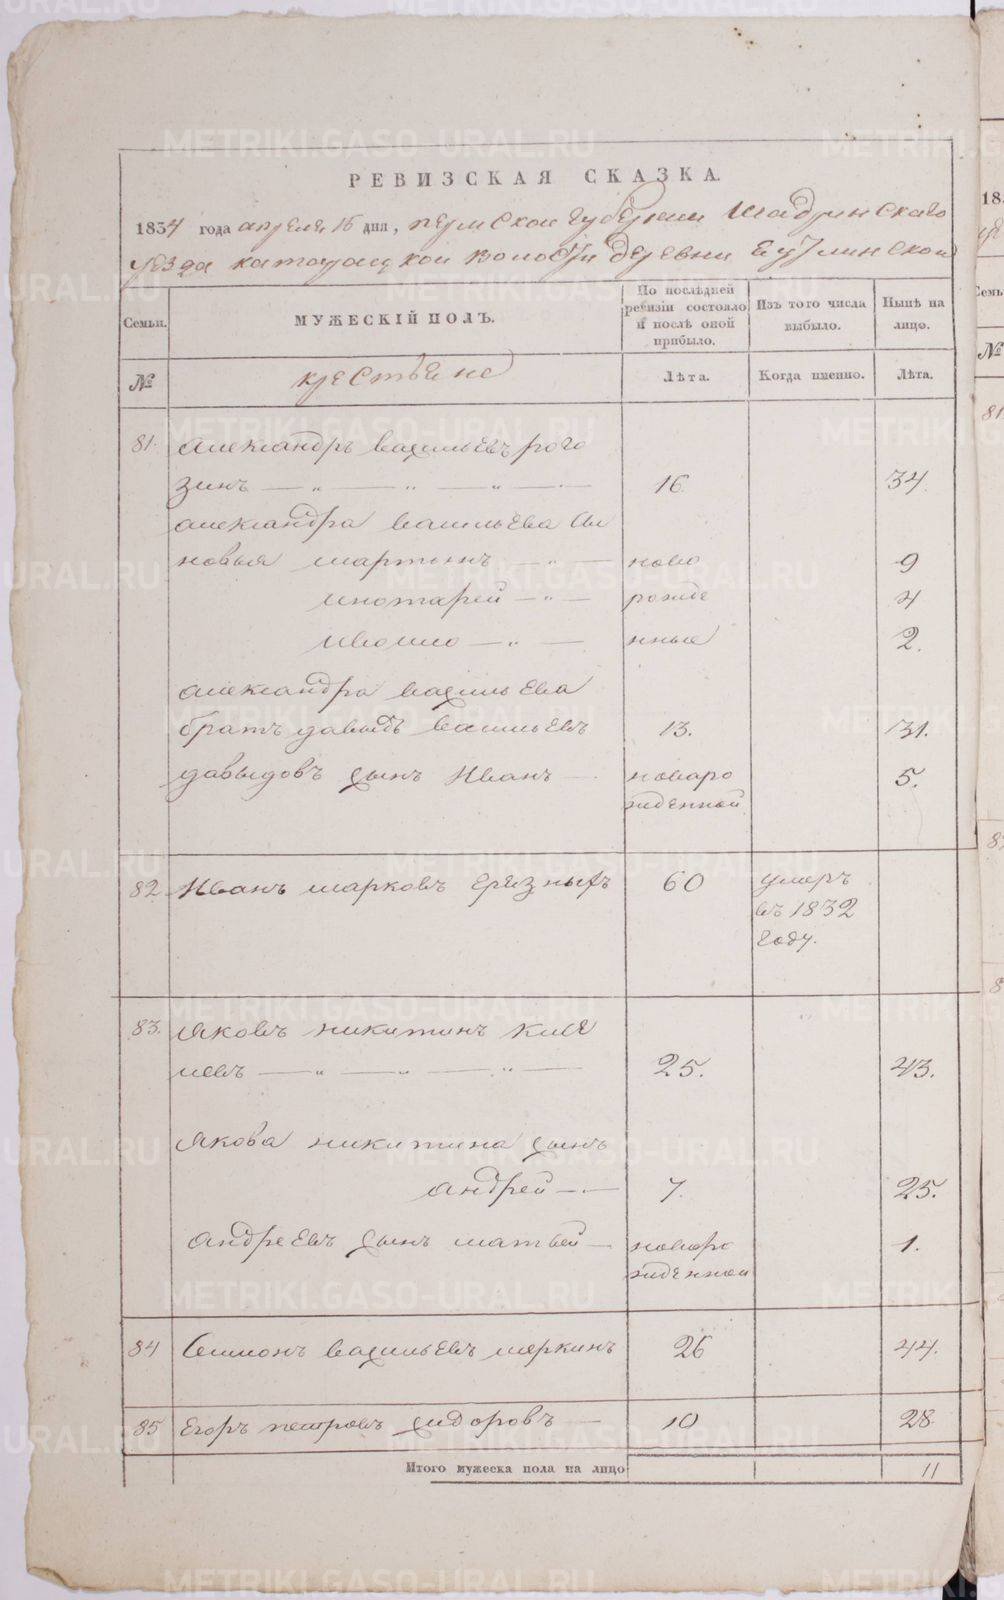 РЕВИЗСКАЯ СКАЗКА.
1834 года апреля 15 дня, пермской губернии Шадринскаго
уезда катайской волости деревни
Семьи.
МУЖЕСКІЙ ПОЛЪ.
По послѣдней ревизіи состояло и послѣ оной прибыло.
Изъ того числа выбыло.
Нынѣ на лицо.
№
крестьяне
Лѣта.
Когда именно.
Лѣта.
81. александръ васильевъ рого
зинъ — „ — „ — „ — 16. 34.
александра васильева сы
новья мартынъ — „ — ново 9
— „ — рожде 4
— „ — нные 2.
александра васильева
братъ давыдъ васильевъ 13. 31.
давыдовъ сынъ Иванъ — новаро 5.
жденной
82. Иванъ марковъ 60 умеръ
въ 1832
году.
83. Яковъ никитинъ кисе
левъ — „ — „ — „ — 25. 43.
Якова никитина сынъ
андрей — 7. 25.
андреевъ сынъ матвей — новоро 1.
жденной
84 Семионъ васильевъ меркинъ 26 44.
85 Егоръ петровъ сидоровъ — 10 28.
Итого мужеска пола на лицо 11
183
Семь
№
81
METRIKI.GASO-URAL.RU